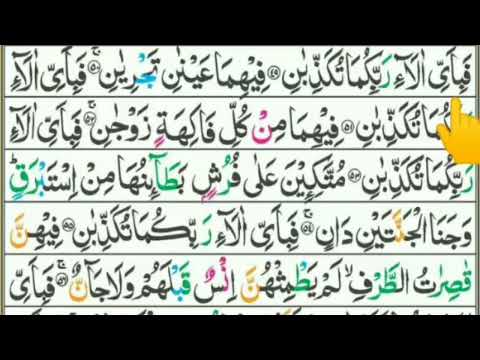 فَبِاَیِّ اٰلَآءِ رَبِّكُمَا تُكَذِّبٰنِ ﴿۴۹﴾ فِیْهِمَا عَیْنٰنِ تَجْرِیٰنِ ﴿۵۰﴾ فَبِاَیِّ اٰلَآءِ
كُمَا تُكَذِّبٰنِ ﴿۵۱﴾ فِیْهِمَا مِنْ كُلِّ فَاكِهَةٍ زَوْجٰنِ ﴿۵۲﴾ فَبِاَیِّ اٰلَآءِ
رَبِّكُمَا تُكَذِّبٰنِ ﴿۵۳﴾ مُتَّكِـِٕیْنَ عَلٰی فُرُشٍۭ بَطَآىِٕنُهَا مِنْ اِسْتَبْرَقٍ ؕ
وَجَنَا الْجَنَّتَیْنِ دَانٍ ﴿۵۴﴾ فَبِاَیِّ اٰلَآءِ رَبِّكُمَا تُكَذِّبٰنِ ﴿۵۵﴾ فِیْهِنَّ
قٰصِرٰتُ الطَّرْفِ ۙ لَمْ یَطْمِثْهُنَّ اِنْسٌ قَبْلَهُمْ وَلَا جَآنٌّ ۚ ﴿۵۶﴾ فَبِاَیِّ